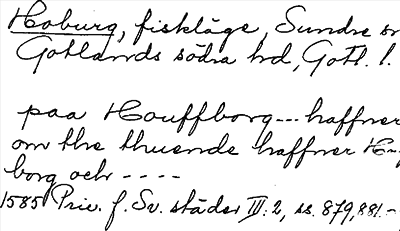 Hoburg, fiskläge, Sundre sn
Gotlands södra hd, Gotl. l.
paa Houffborg --- haffner
om the thuende haffner
borg och ----
1585 Priv. f. Sv. städer III: 2, ss. 879, 881.-